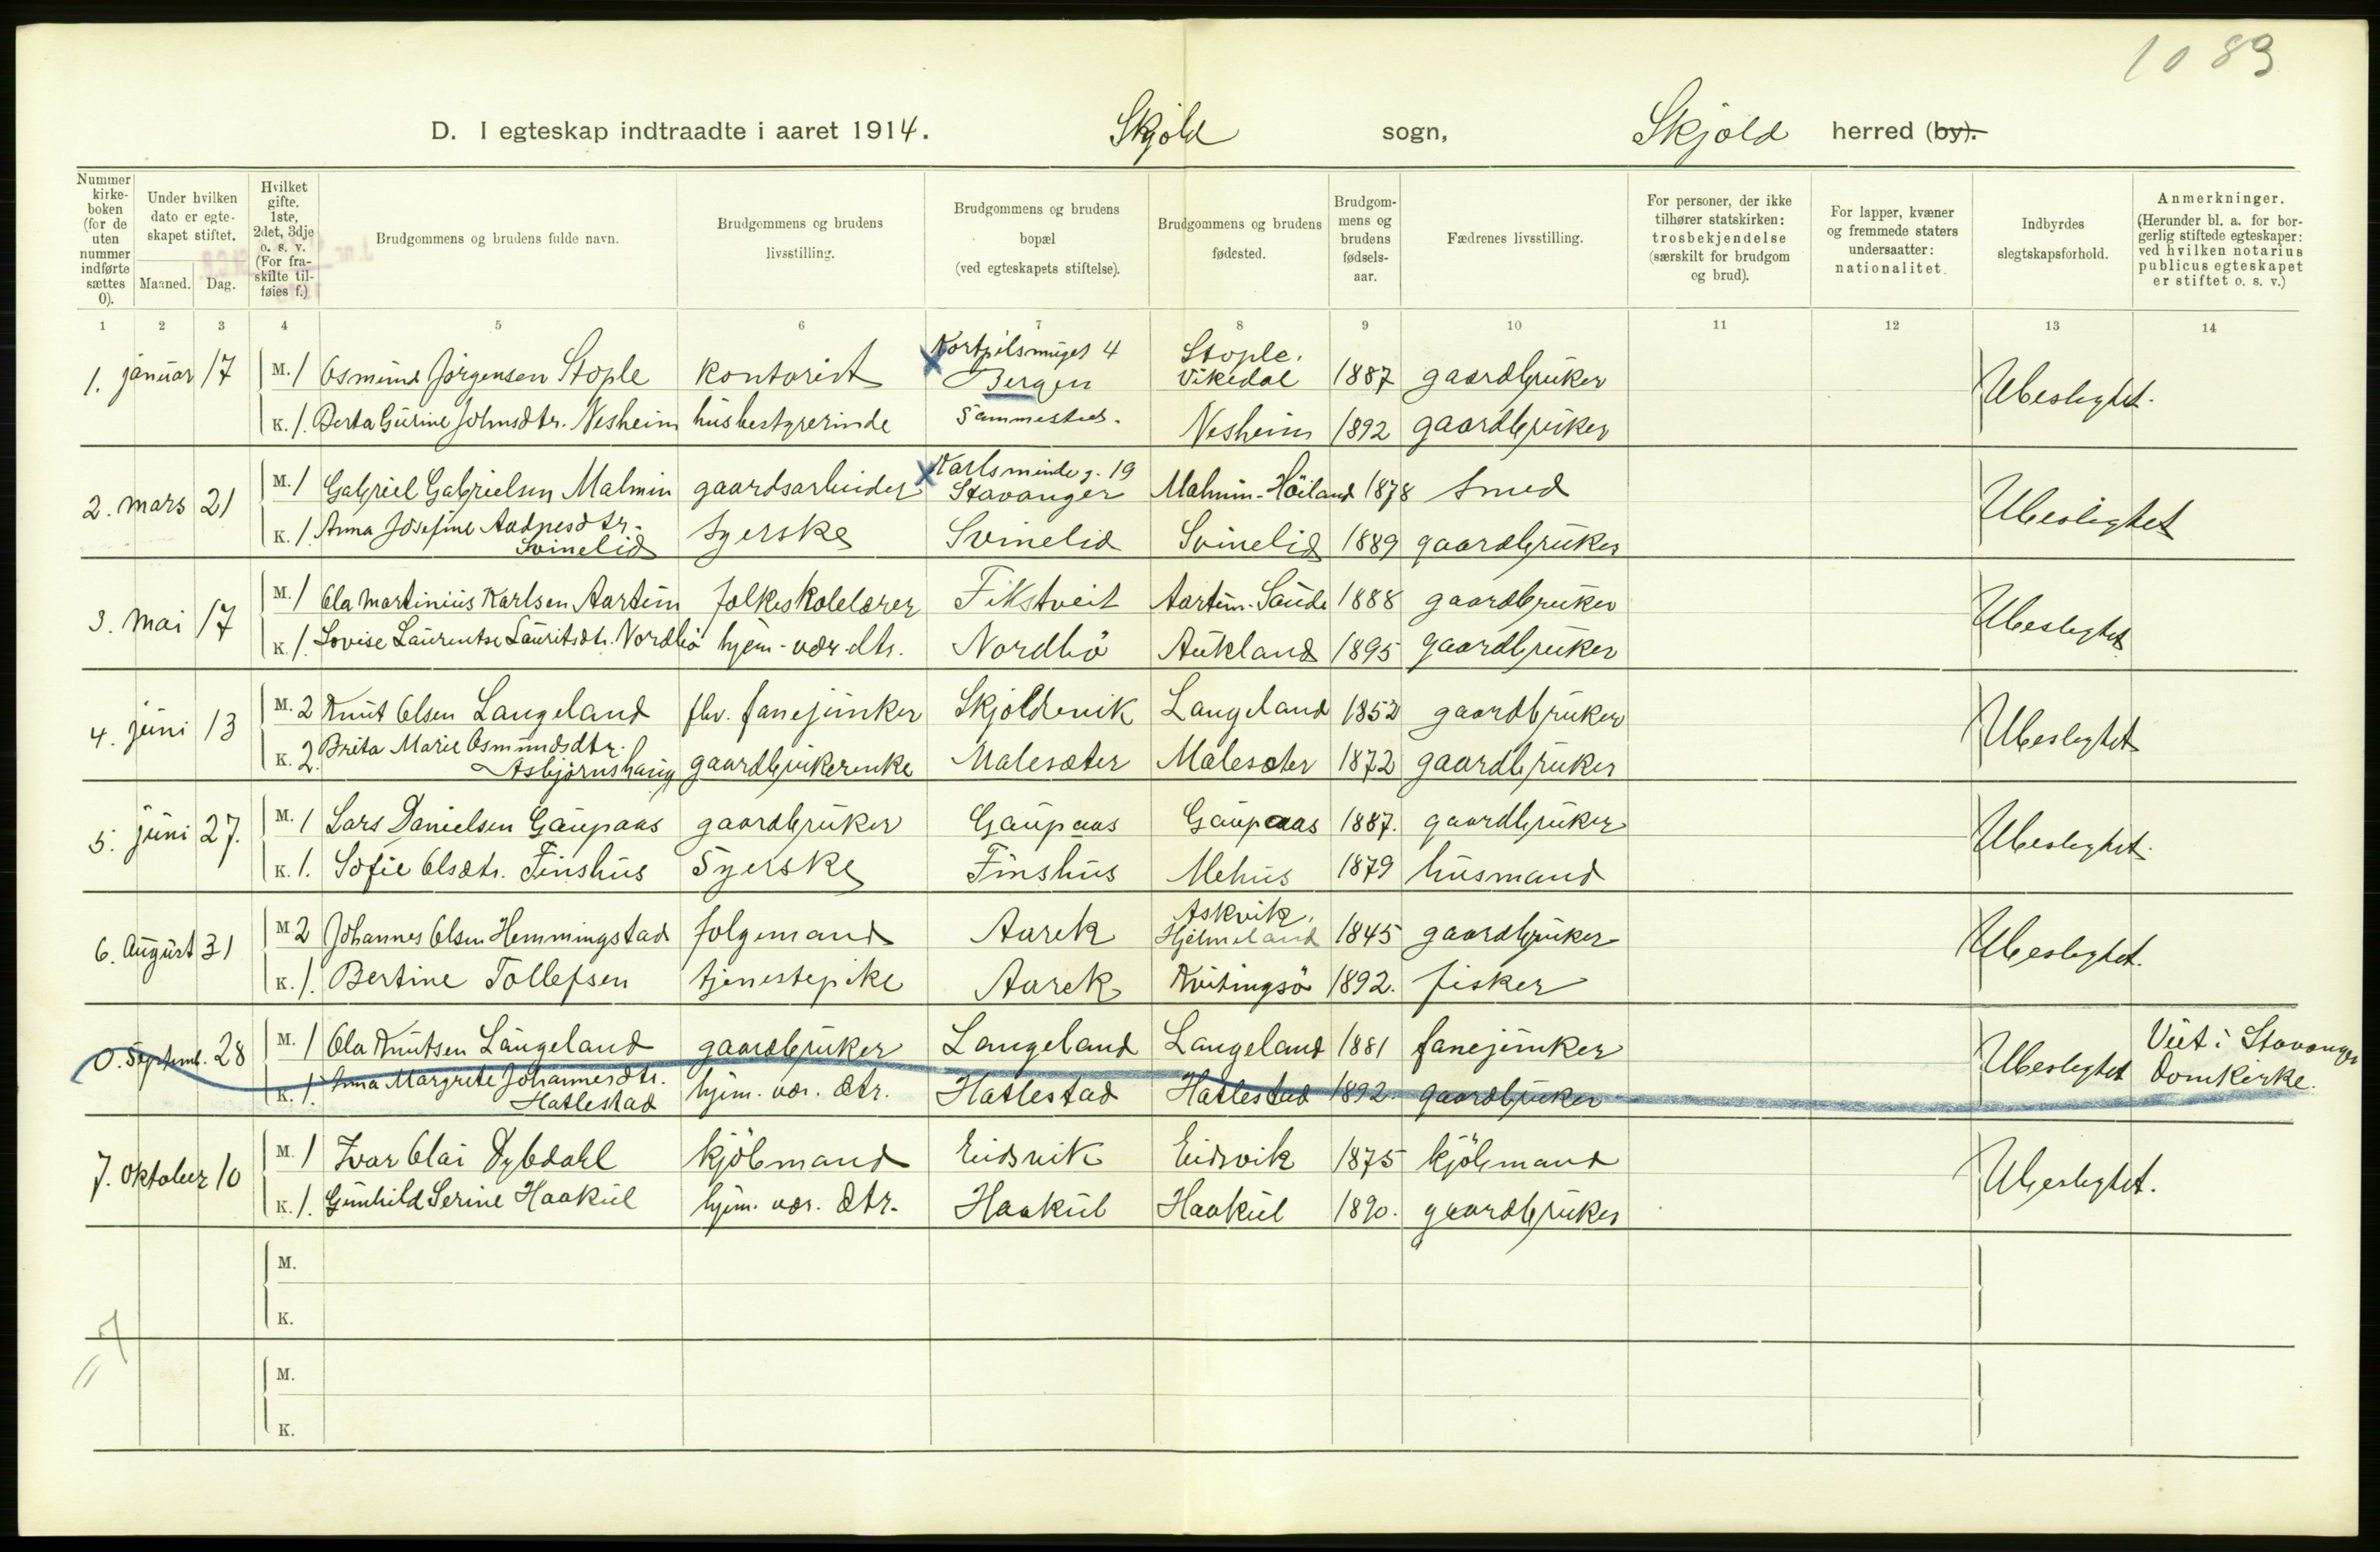 1083
D. I egteskap indtraadte i aaret 1914. Skjold sogn, Skjold herred (by).
Nummer kirke-boken (for de uten nummer indførte sættes 0).
Under hvilken dato er egte-skapet stiftet.
Maaned. Dag.
Hvilket gifte. 1ste, 2det, 3dje o. s. v. (For fra-skilte til-føies f.)
Brudgommens og brudens fulde navn.
Brudgommens og brudens livsstilling.
Brudgommens og brudens bopæl (ved egteskapets stiftelse).
Brudgommens og brudens fødested.
Brudgom-mens og brudens fødsels-aar.
Fædrenes livsstilling.
For personer, der ikke tilhører statskirken: trosbekjendelse (særskilt for brudgom og brud).
For lapper, kvæner og fremmede staters undersaatter: nationalitet.
Indbyrdes slegtskapsforhold.
Anmerkninger. (Herunder bl. a. for bor-gerlig stiftede egteskaper: ved hvilken notarius publicus egteskapet er stiftet o. s. v.)
1 2 3 4 5 6 7 8 9 10 11 12 13 14
1. januar 17 M. 1 Osmund Jørgensen Stople kontorist 4 Bergen Stople. Vikedal 1887 gaardbruker Ubeslegtet.
K. 1. Berta Gurine Johnsdtr. Nesheim husbestyrerinde Sammesteds. Nesheim 1892 gaardbruker
2. mars 21 M. 1 Gabriel Gabrielsen Malmin gaardsarbeider Karlsminde g. 19 Stavanger Malmin-Höiland 1878 Smed Ubeslegtet
K. 1. Anna Josefine Aadnesdtr. Svinelid Syerske Svinelid Svinelid 1889 gaardbruker
3. mai 17 M. 1 Ola Martinius Karlsen Aartun folkeskolelærer Fikstveit Aartun. Saude 1888 gaardbruker Ubeslegtet
K. 1. Lovise Laurentse Lauritsdtr. Nordbö hjem. vær. dtr. Nordbö Aukland 1895 gaardbruker
4. juni 13 M. 2 Knut Olsen Langeland fhv. fanejunker Skjoldevik Langeland 1852 gaardbruker Ubeslegtet
K. 2. Brita Marie Osmundsdtr. Asbjørnshaug gaardbrukerenke Malesæter Malesæter 1872 gaardbruker
5. juni 27. M. 1 Lars Danielsen Gaupaas gaardbruker Gaupaas Gaupaas 1887. gaardbruker Ubeslegtet.
K. 1. Sofie Olsdtr. Finshus Syerske Finshus Mehus 1879 husmand
6. August 31 M 2 Johannes Olsen Hemmingstad folgemand Aarek Askvik, Hjelmeland 1845 gaardbruker Ubeslegtet.
K. 1. Bertine Tollefsen tjenestepike Aarek Kvitingsö 1892. fisker
0. Septemb. 28 M. 1 Ola Knutsen Langeland gaardbruker Langeland Langeland 1881 fanejunker Ubeslegtet Viet i Stavanger Domkerke.
K. 1. Anna Margrete Johannesdtr. Hatlestad hjem. vær. dtr. Hatlestad Hatlestad 1892. gaardbruker
7. Oktober 10 M. 1 Ivar Olai Dybdahl kjöbmand Eidsvik Eidsvik 1875 kjöbmand Ubeslegtet.
K. 1. Gunhild Serine Haakul hjem. vær. dtr. Haakul Haakul 1890. gaardbruker
M.
K.
7
M.
K.